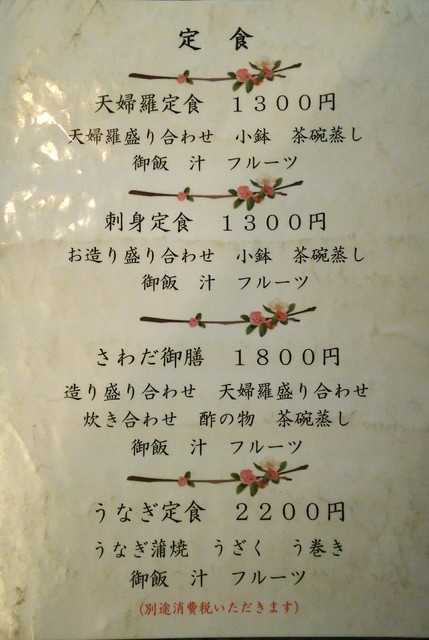 定 食
天婦羅定食 １３００円
天婦羅盛り合わせ 小鉢 茶碗蒸し
御飯 汁 フルーツ
刺身定食 １３００円
お造り盛り合わせ 小鉢 茶碗蒸し
御飯 汁 フルーツ
さわだ御膳 １８００円
造り盛り合わせ 天婦羅盛り合わせ
炊き合わせ 酢の物 茶碗蒸し
御飯 汁 フルーツ
うなぎ定食 ２２００円
うなぎ蒲焼 うざく う巻き
御飯 汁 フルーツ
(別途消費税いただきます)